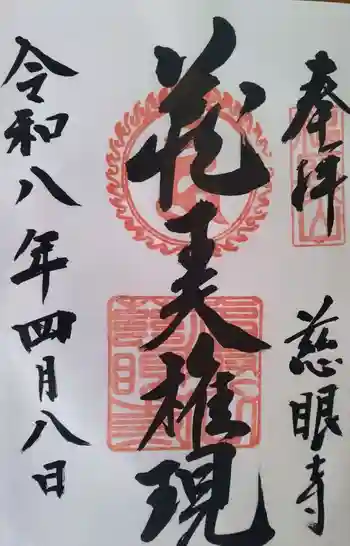 奉拝
慈眼寺
蔵王大権現
令和八年四月八日